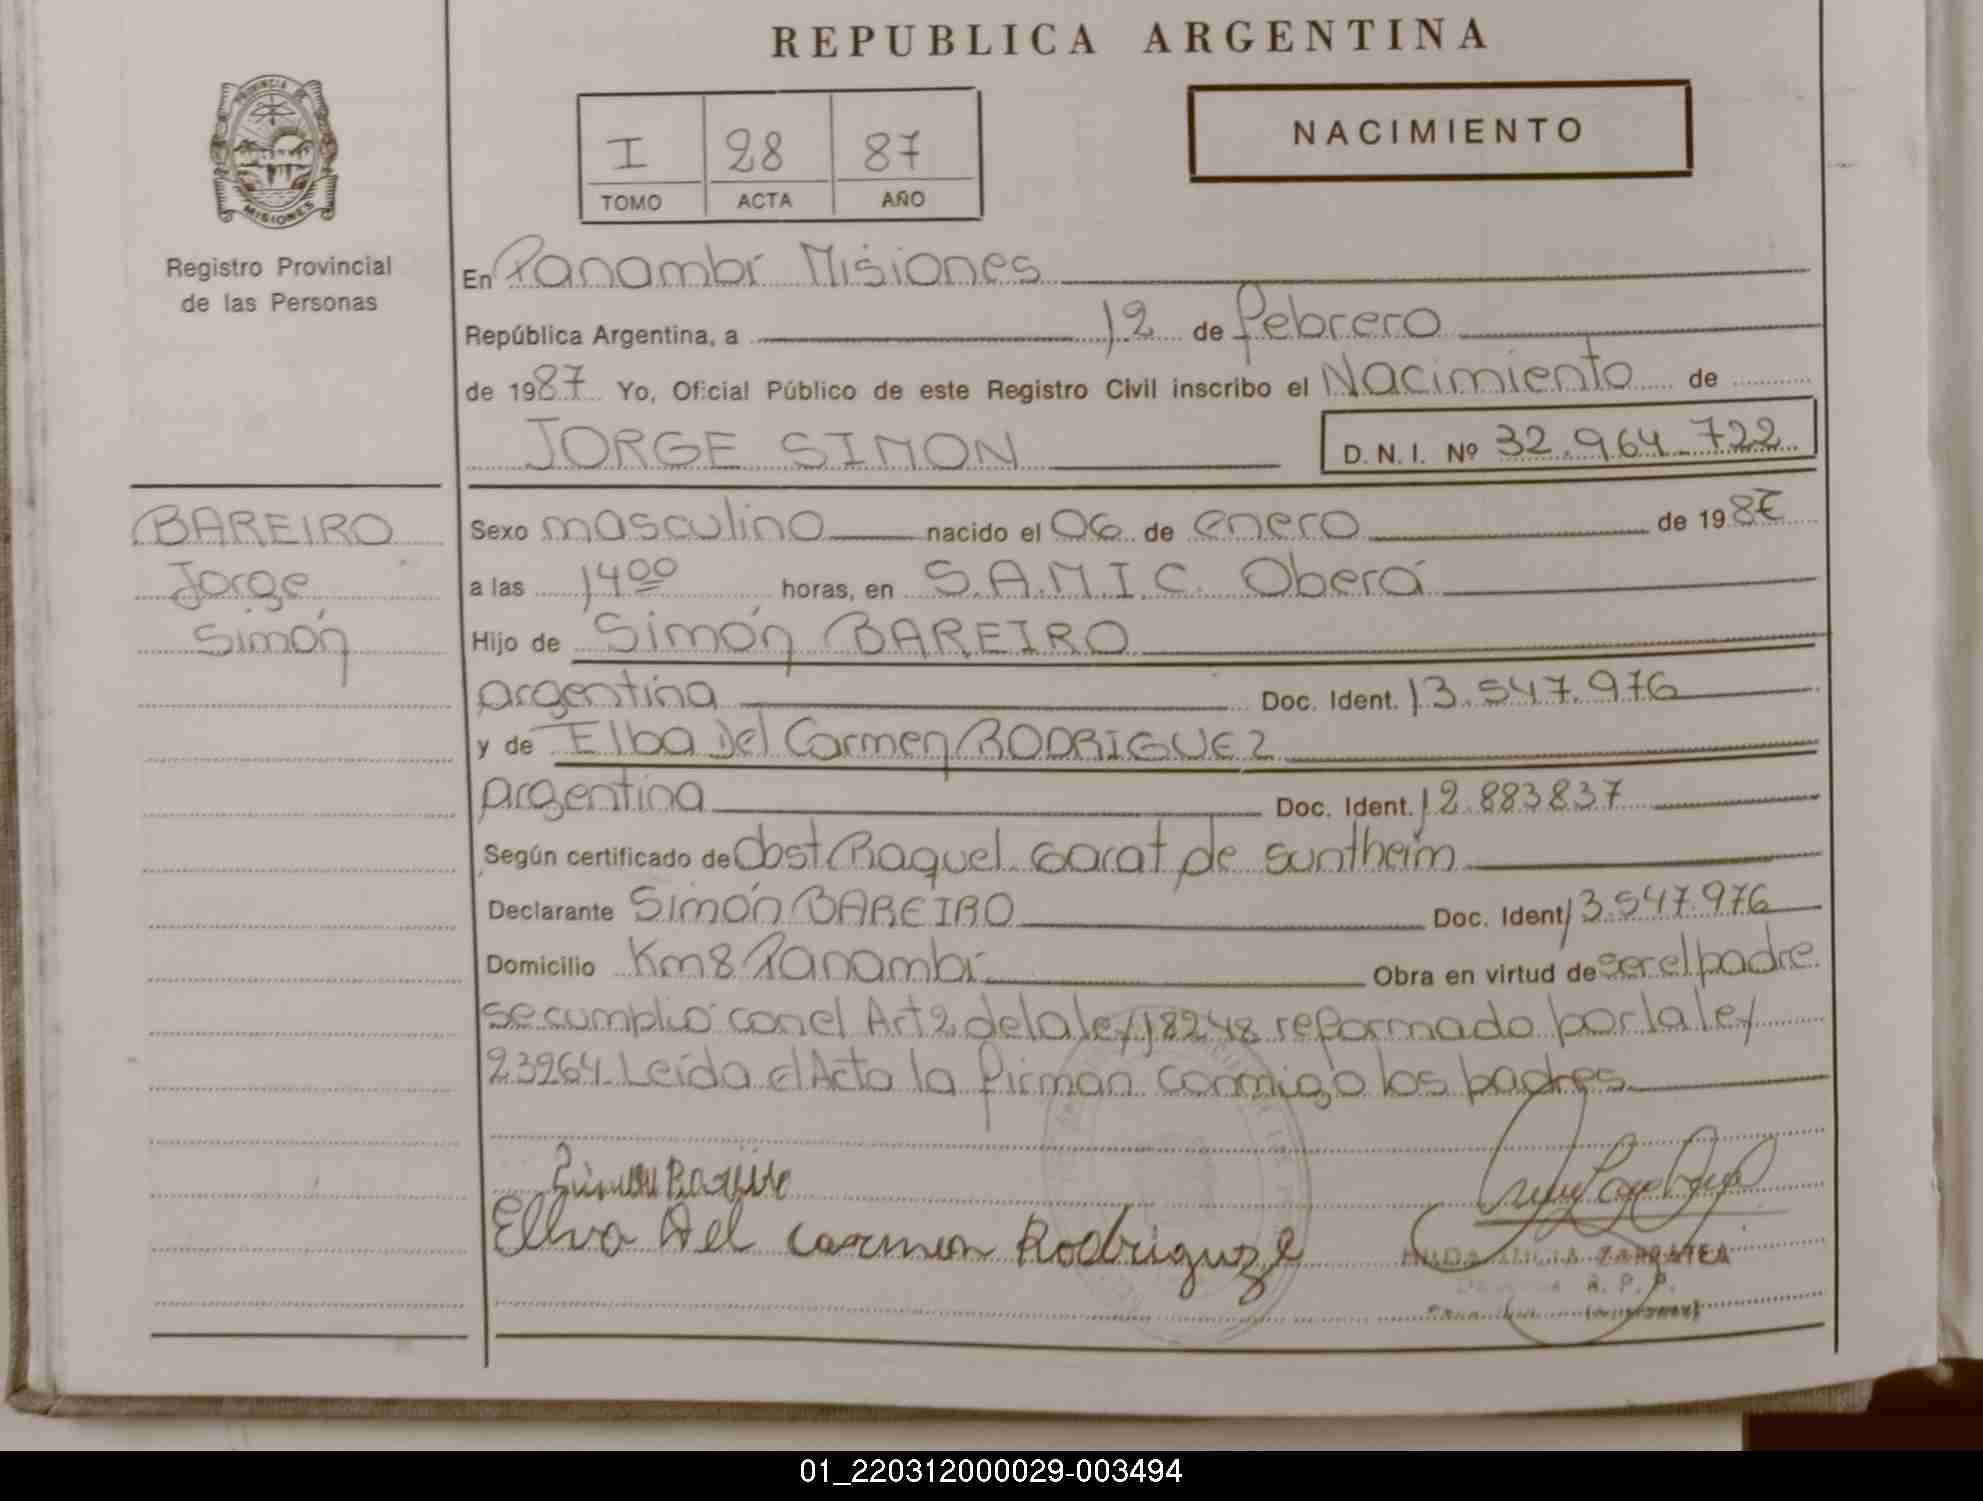 REPUBLICA ARGENTINA
I 28 87
TOMO ACTA AÑO
NACIMIENTO
PROVINCIA DE
MISIONES
Registro Provincial
de las Personas
En Panambí Misiones
República Argentina, a 12 de febrero
de 1987 Yo, Oficial Público de este Registro Civil inscribo el Nacimiento de
JORGE SIMON D.N.I. Nº 32.964.722
BAREIRO
Jorge
Simón
Sexo masculino nacido el 06 de enero de 198
a las 14 00 horas, en S.A.M.I.C. Oberá
Hijo de Simón BAREIRO
argentina Doc. Ident. 13.547.976
y de Elba Del Carmen RODRIGUEZ
argentina Doc. Ident. 12.883837
Según certificado de Obst Raquel Garat de suntheim
Declarante Simón BAREIRO Doc. Ident 13.547.976
Domicilio Km8 Panambí Obra en virtud de ser el padre
se cumplió con el Art 2 de la ley 18248 reformado por la ley
23264 Leída el Acta la firman conmigo los padres
Ellva del carmen Rodriguze
ZARRATEA
R. P. P.
01_220312000029-003494